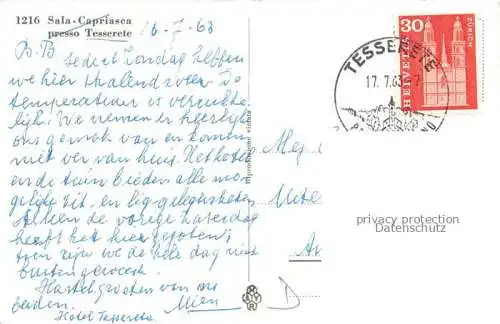 1216 Sala-Capriasca
presso Tesserete
16-7-63
B.B.
Sedert Zondag hebben
we hier Thalend weer. De
temperatuur is verrukke-
lijk. We nemen er heerlijk
ons gemak van en komen
niet ver van huis. Het hotel
en de tuin bieden alle mo-
gelijke zit en lig gelegenheden
Alleen de vorige zaterdag
heeft het hier gegoten;
toen zijn we de hele dag niet
buiten geweest.
Hartel. groeten van ons
beiden.
Mien
Hotel Tesserete
HELVETIA
30
ZÜRICH
TESSERETE
17.7.63
Mej
Uite
A
D
privacy protection
Datenschutz